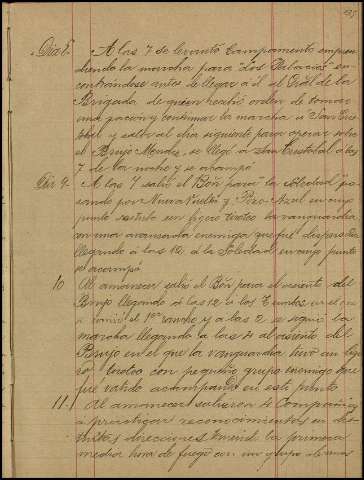 Dia 8. A las 7 se levantó Campamento empren
diendo la marcha para "Los Palacios" en
contrandose antes de llegar á él al Gral de la
Brigada de quien recibió orden de tomar
una racion y continuar la marcha a San Cris
tobal y salir al dia siguiente para operar sobre
el Brujo Mendez, se llegó a San Cristobal a las
7 de la noche y se acampó.
Dia 9. A las 7 salió el Bón para la Soledad pa
sando por Nueva Vuelta y Pozo-Azul en cuyo
punto sostuvo un ligero tiroteo la vanguardia
con una avanzada enemiga que fué dispersada
llegando á las 10 á la Soledad en cuyo punto
se acampó
10 Al amanecer salió el Bón para el asiento del
Brujo llegando á las 12 a los en el cu
el 1er rancho y a las 2 se siguió la
marcha llegando a las 4 al asiento del
Brujo en el que la vanguardia tuvo un lige
ro tiroteo con pequeño grupo enemigo que
fué batido acampando en este punto
11. Al amanecer salieron 4 Compañias
a practicar reconocimientos en dis
tintas direcciones teniendo la primera
media hora de fuego con un grupo de unos